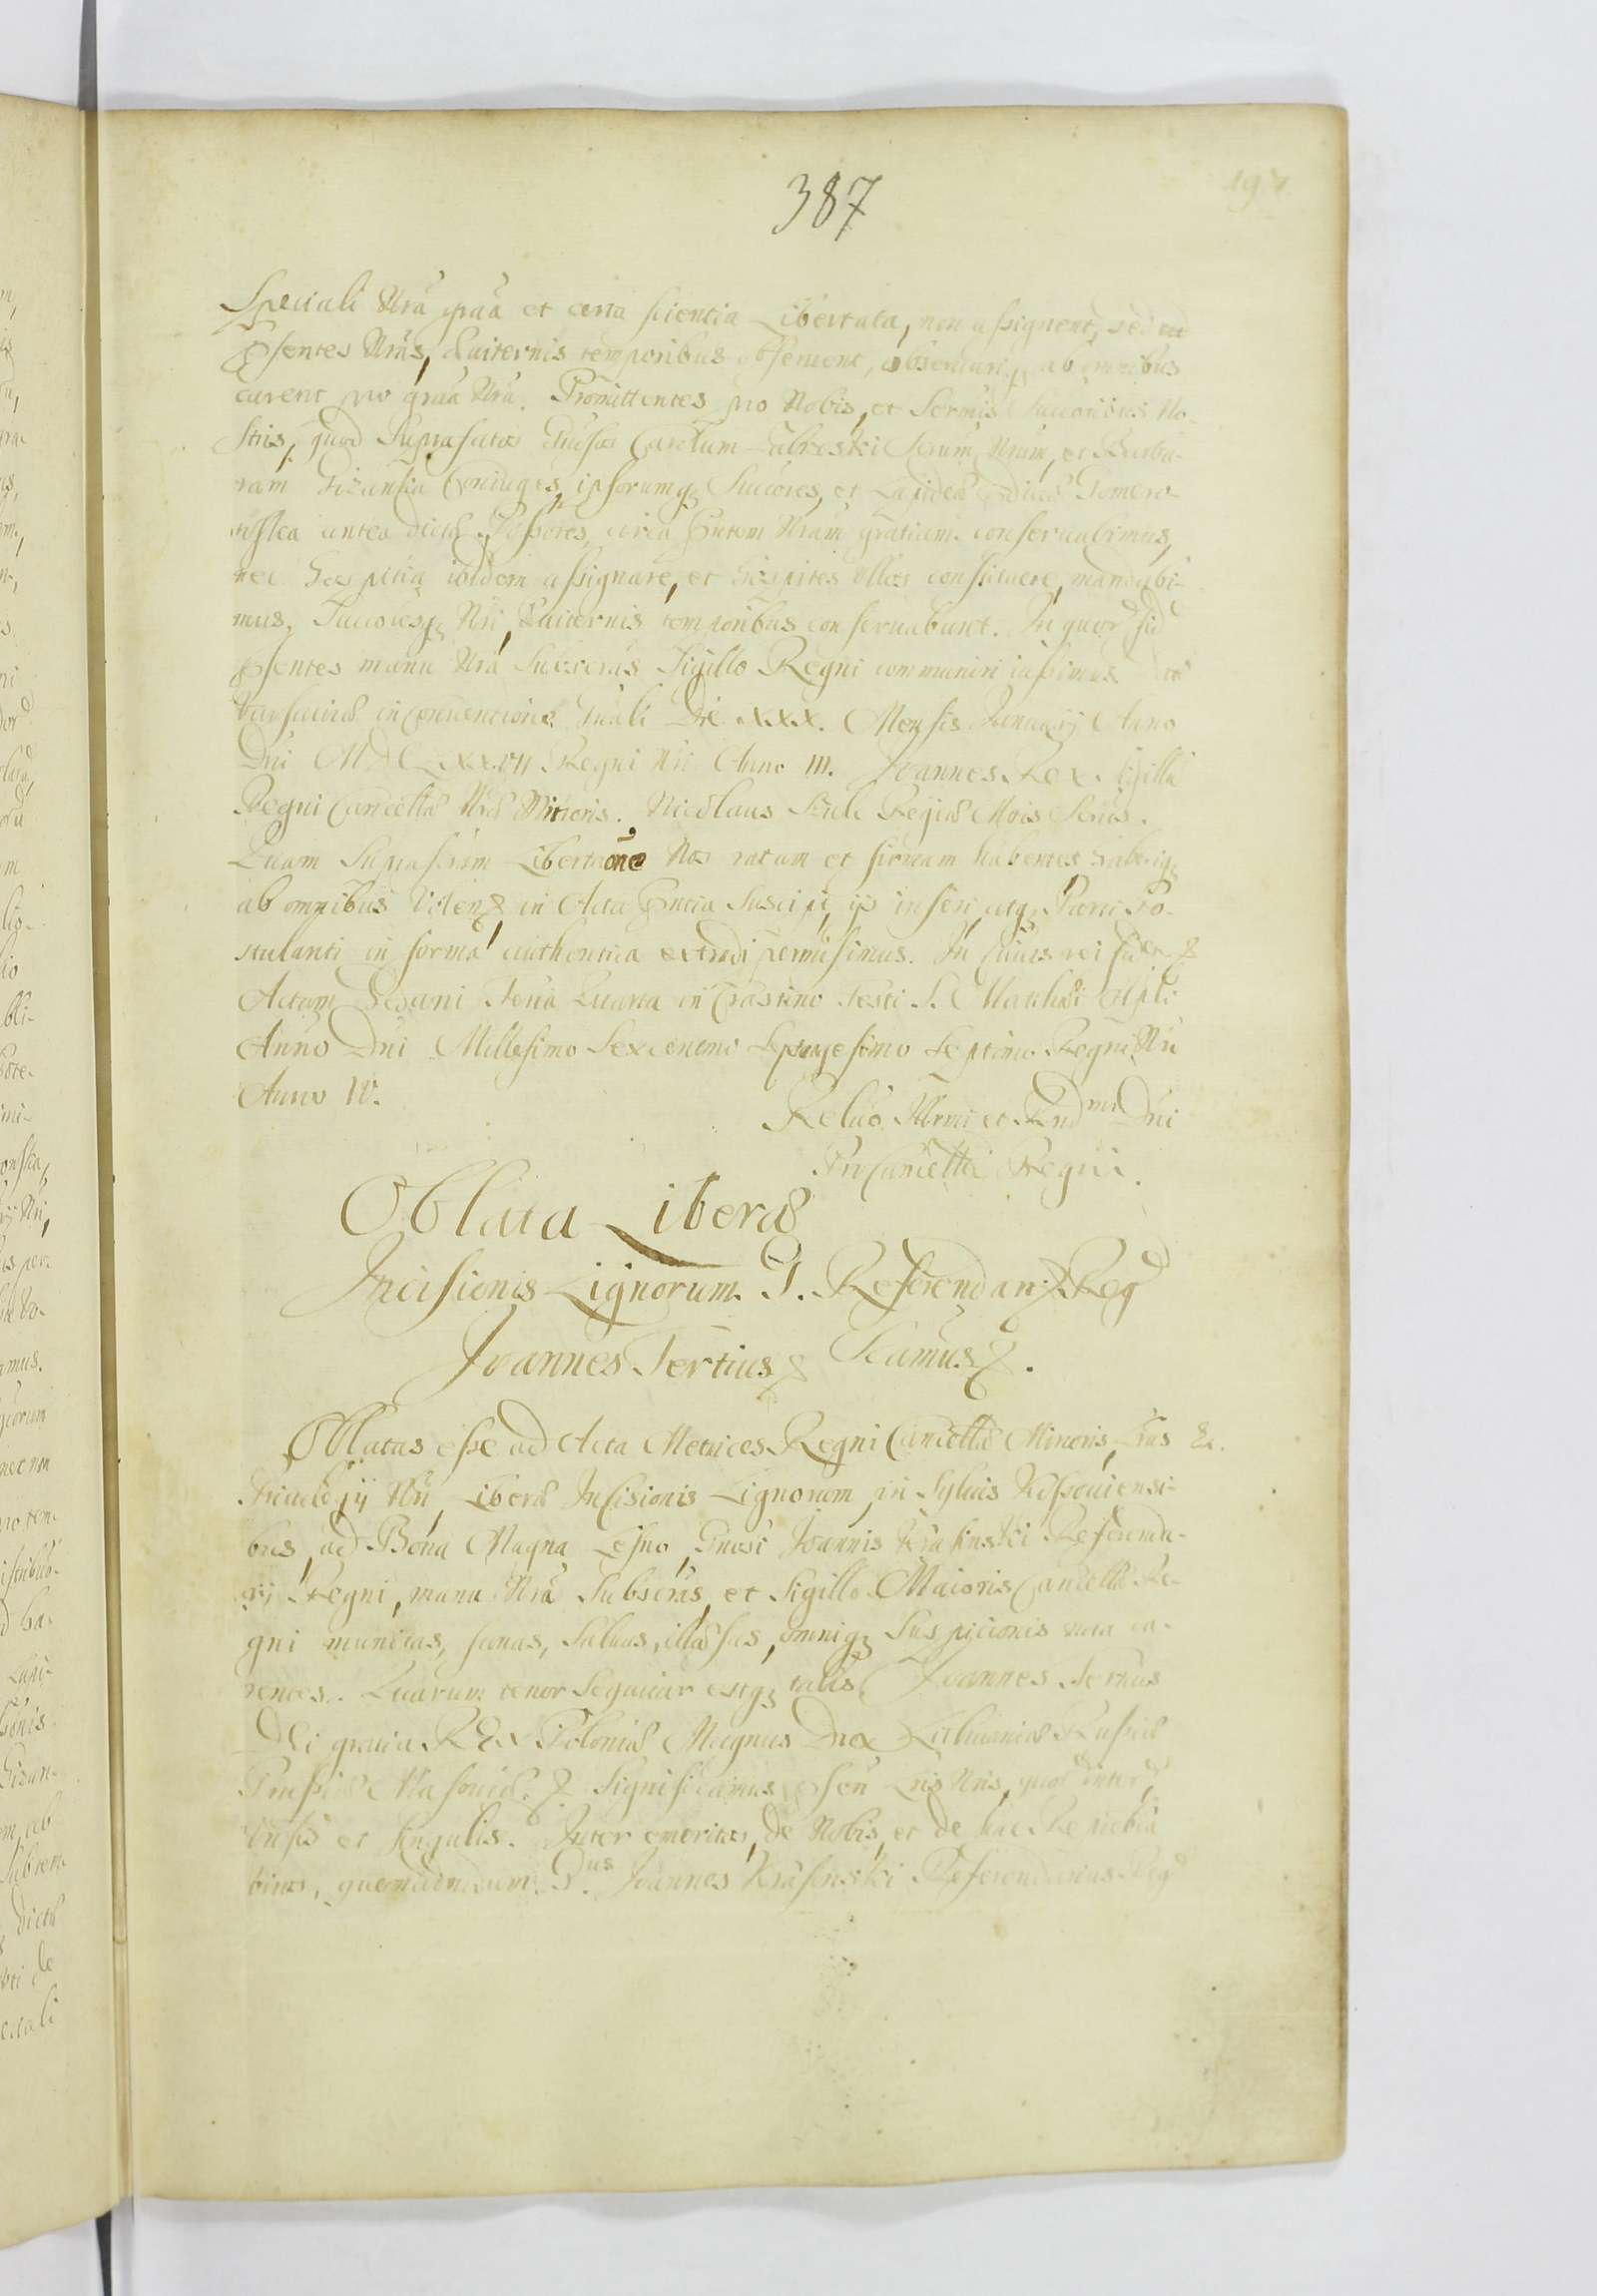 197
387
Speciali Nrã graã et certa scientia Libertata, non assignent, sed
Pṡentes Nrãs, Euiternis temporibus obseruent, obseruariq; ab omnibus
curent pro graã Nrã. Promittentes pro Nobis, et Sermis Succoribus No-
stris, quod Suprafatos Carolum Serum Nrum, et Barba-
ram Coniuges, ipsorumq; Succores, et Lapideã
antea dictã Possores, circa Pntem Nram gratiam conseruabimus,
nec Hospitia ibidem assignare, et Hospites ullos constituere, mandabi-
mus, Succoresq; Nri, Euiternis temporibus conseruabunt. In quor fid
Pṡentes manu Nrã Subscras Sigillo Regni communiri iussimus.
Varsauiæ in Conuentione Gnali Die XXX. Mensis January Anno
Dni MDCLXXVII Regni Nri Anno III. Joannes Rex. Sigillũ
Regni Cancellæ Nræ Minoris. Nicolaus Regiæ Mtis Scrius.
Quam Supraṡcram Libertaõne Nos ratam et firmam habentes haberiq;
ab omnibus Volen in Acta Pntia Suscipi, ijs inseri, atq; Parti Po-
stulanti in formã authentica extradi permisimus. In Cuius rei fidem
Actum Gedani Feria Quarta in Crastino Festi S. Matthæi Apli
Anno Dni Millesimo Sexcentmo Septuagesimo Septimo Regni Nri
Anno IV.
Relaõ Illrmi et Rndmi Dni
ProCancellÿ Regni.
Oblata Liberæ
Incisionis Lignorum. G. Referendari Reg
Joannes Tertius Scamus.
Oblatas esse ad Acta Metrices Regni Cancellæ Minoris, Lras &.
Priuilegÿ Nri Liberæ Incisionis Lignorum, in Syluis
bus, ad Bona Magna Leśno, Gnosi Joannis Krasinski Referenda-
rÿ Regni, manu Nrã Subscras, et Sigillo Maioris Cancellæ Re-
gni munitas, sanas, Saluas, illæsas, omniq; Suspicionis nota ca-
rentes. Quarum tenor Sequitur estq; talis. Joannes Tertius
Dei gratia REX Poloniæ Magnus Dux Lithuaniæ Russiæ
Prussiæ Masouiæ. Significamus Pṡen Lris Nris, quor interẽ,
Vnisis et Singulis. Inter emeritos, de Nobis, et de hac Republica
viros, quemadmodum Gnus. Joannes Krasinski Referendarius Reg